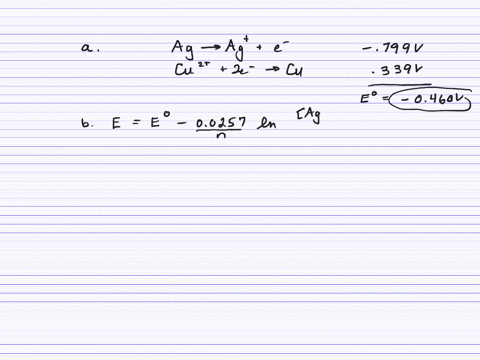 a. Ag → Ag⁺ + e⁻ -.799V
Cu²⁺ + 2e⁻ → Cu .339V
E° = -0.460V
b. E = E° - 0.0257/n ln [Ag